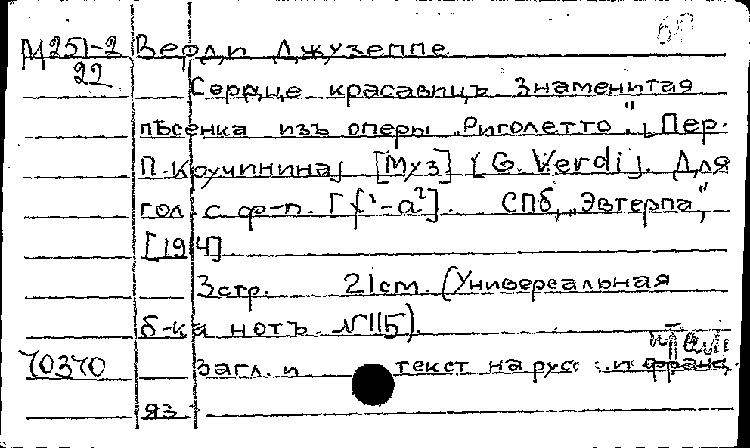 М251-2 Верди Джузеппе
22
Сердце красавицъ Знаменитая
пѣсенка изъ оперы „Риголетто". [Пер.
П. Кручинина] [Муз] [G. Verdi]. Для
гол. с ф-п. [f¹-a²]. СПб, „Эвтерпа",
[1914]
3 стр. 21 см. (Универсальная
б-ка нотъ №115)
70370 Загл. и текст на рус и франц.
яз